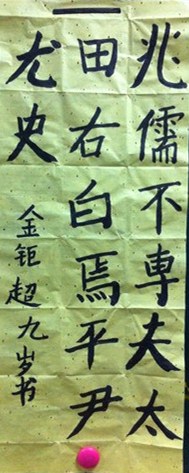 兆儒不専夫太
田右白焉平尹
尤史
金钜超九岁书